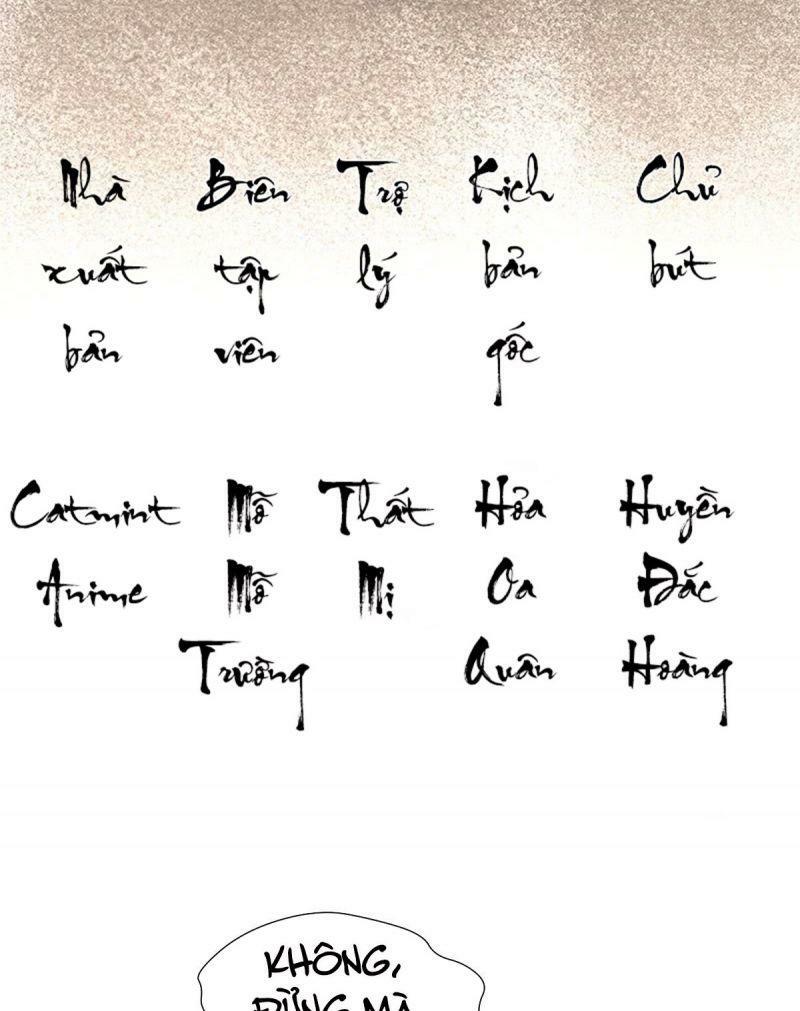 Nhà xuất bản
Biên tập viên
Trợ lý
Kịch bản gốc
Chủ bút
Catmint Anime
Mỗ Mỗ Trường
Thất Mị
Hỏa Oa Quân
Huyền Đắc Hoàng
KHÔNG,
ĐỪNG MÀ